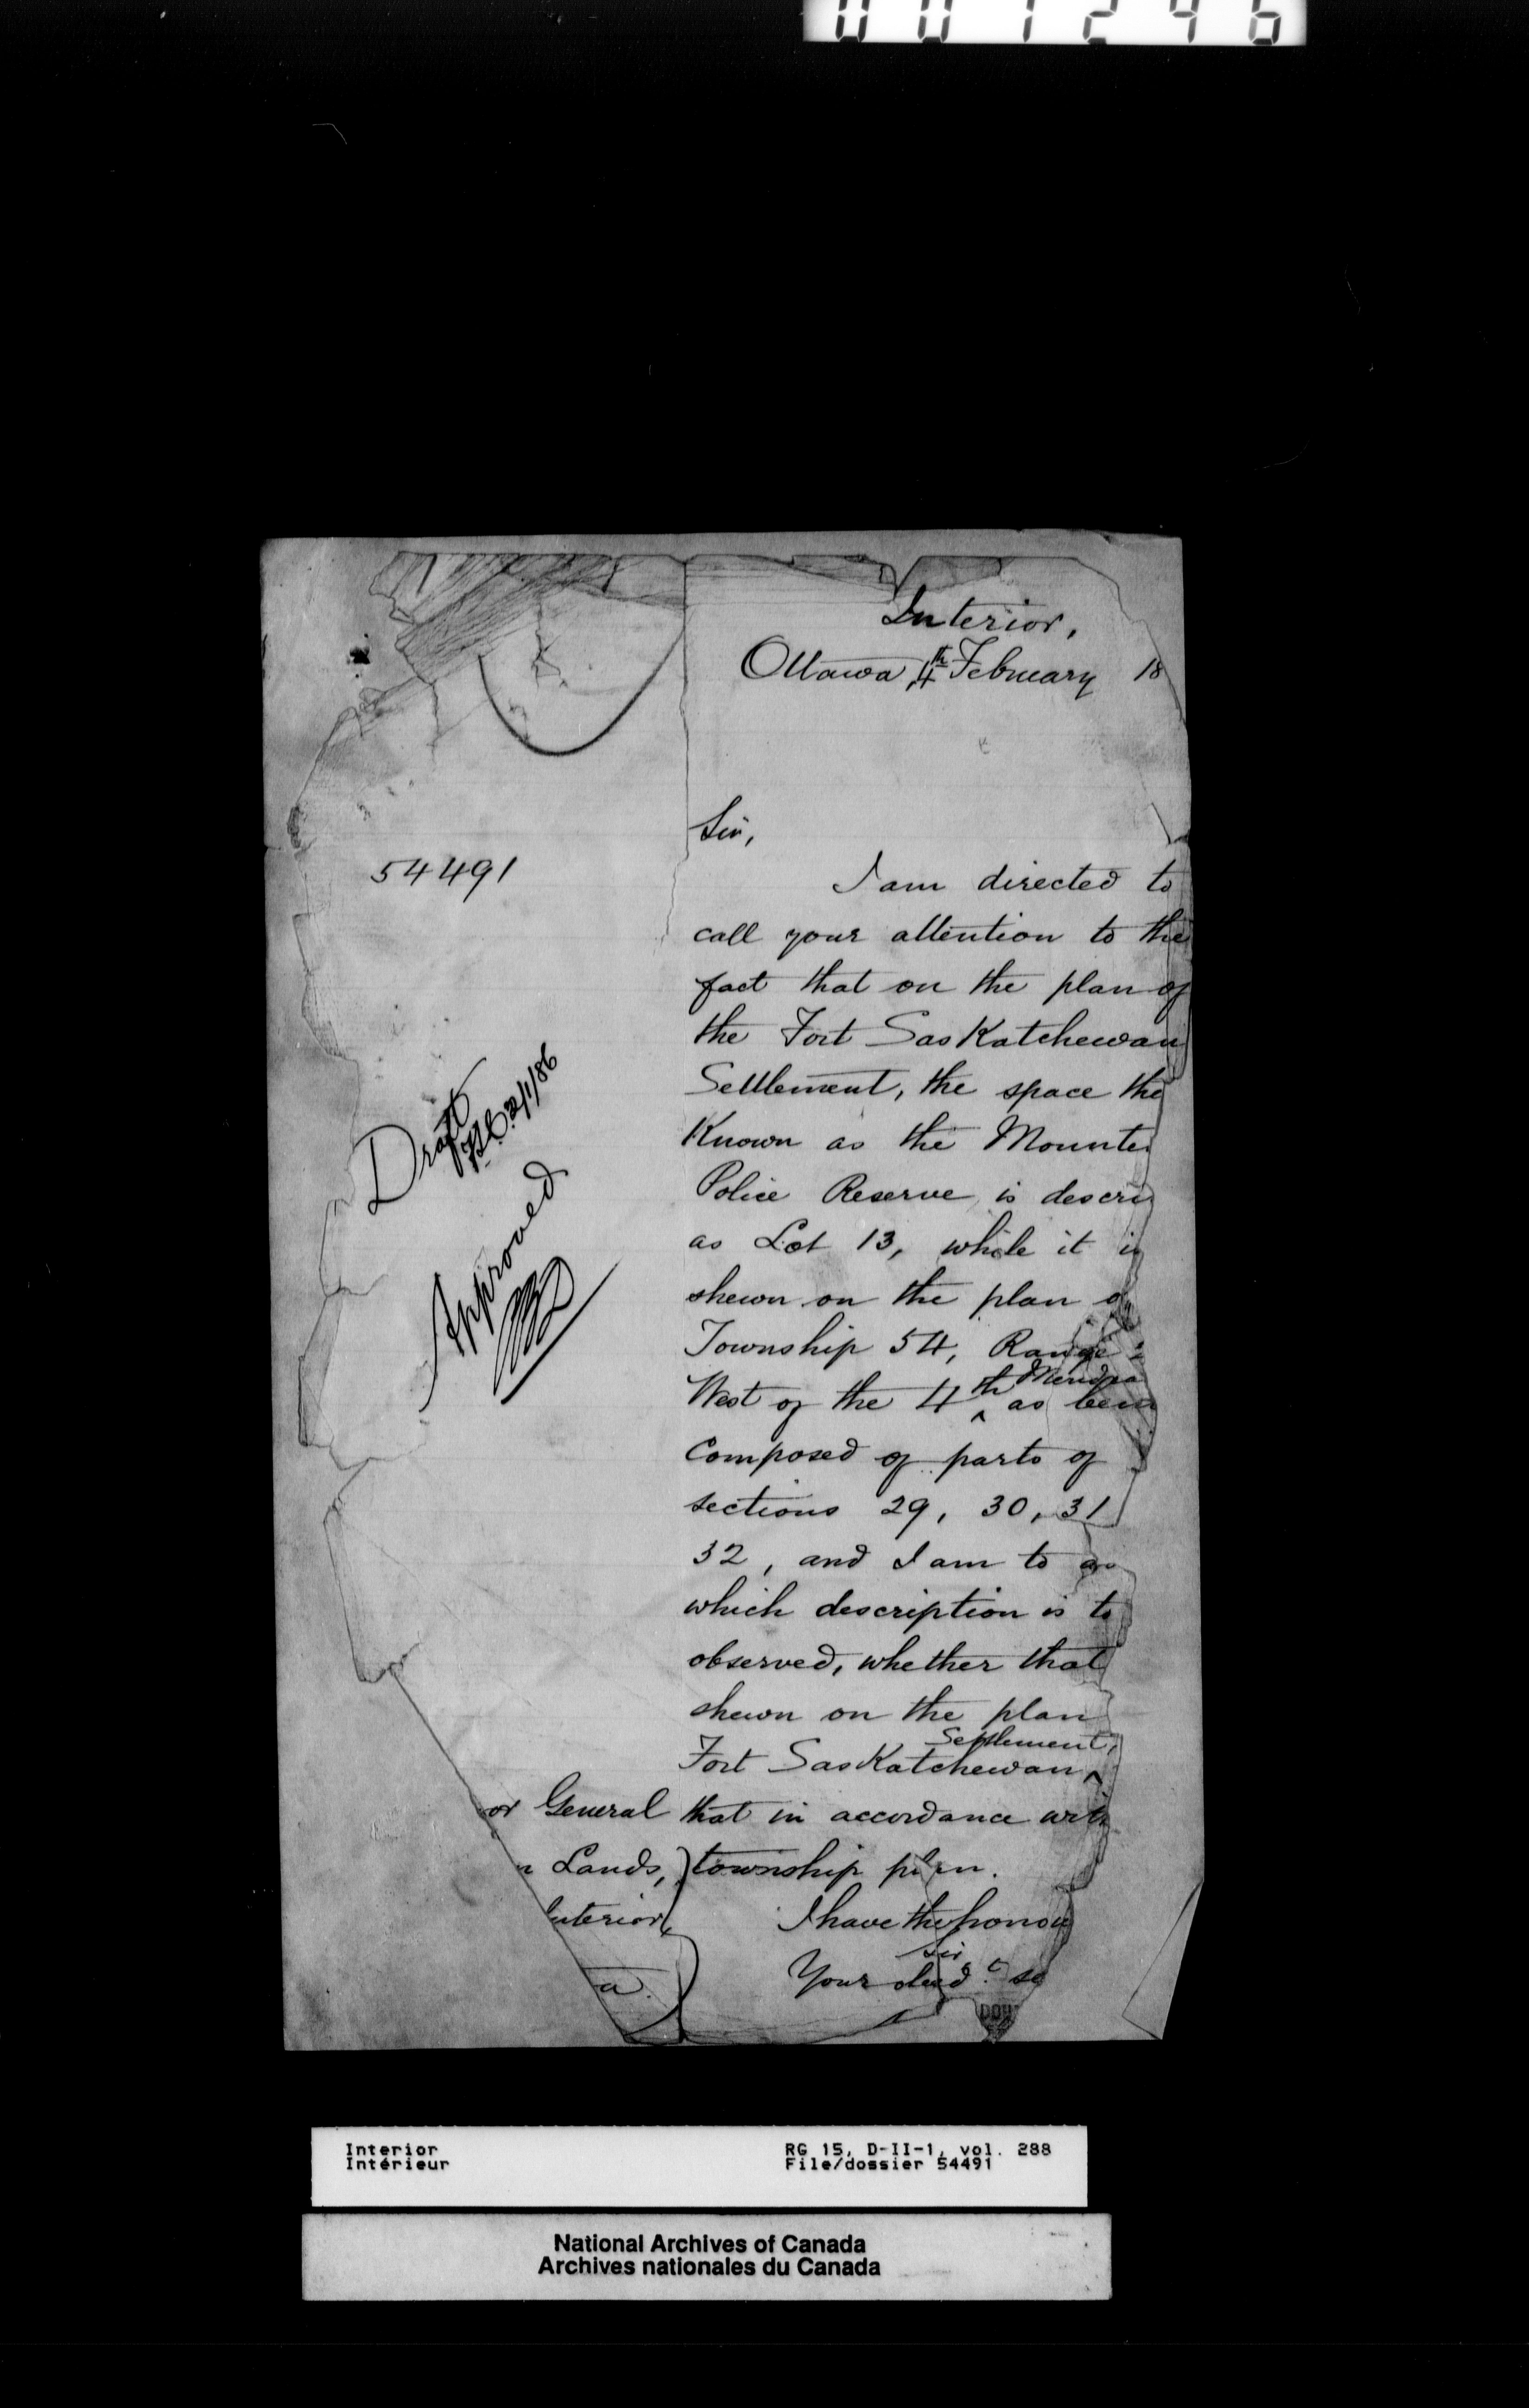 001246
Interior,
Ottawa, 4th February 18
Sir,
54491
I am directed to
call your attention to the
fact that on the plan of
the Fort Saskatchewan
Settlement, the space the
Known as the Mounte
Police Reserve is descri
as Lot 13, while it is
shewn on the plan of
Township 54, Range 2
West of the 4th Meridia
as bein
Composed of parts of
sections 29, 30, 31
32, and I am to as
which description is to
observed, whether that
shewn on the plan
Fort Saskatchewan Settlement,
or General that in accordance with
n Lands, township plan.
Interior, I have the honou
Sir
a. Your obed.t se
Draft
2/1/86
Approved
Interior
Intérieur
RG 15, D-II-1, vol. 288
File/dossier 54491
National Archives of Canada
Archives nationales du Canada